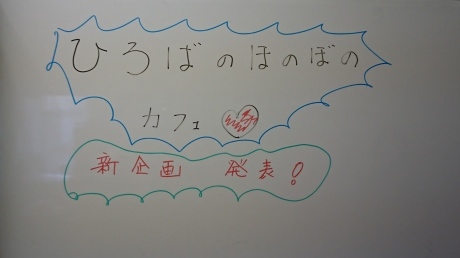 ひろばのほのぼの
カフェ
新企画 発表!